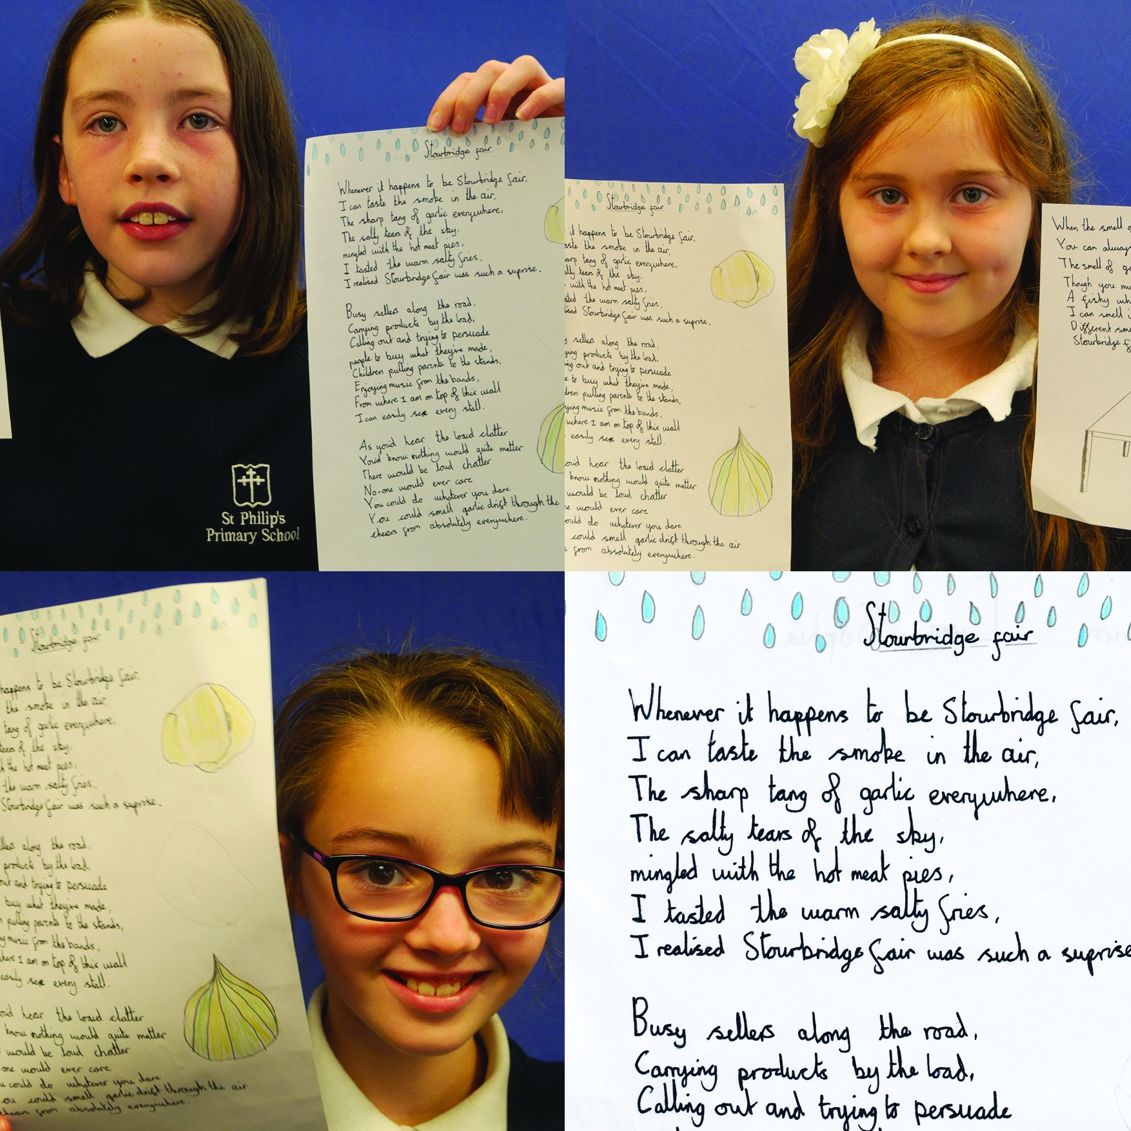 Stourbridge fair
Whenever it happens to be Stourbridge fair,
I can taste the smoke in the air,
The sharp tang of garlic everywhere,
The salty tears of the sky,
mingled with the hot meat pies,
I tasted the warm salty fries,
I realised Stourbridge fair was such a suprise.
Busy sellers along the road,
Carrying products by the load,
Calling out and trying to persuade
people to buy what they've made,
Children pulling parents to the stands,
Enjoying music from the bands,
From where I am on top of this wall
I can easily see every stall.
As you'd hear the loud clatter
You'd know nothing would quite matter
There would be loud chatter
No-one would ever care
You could do whatever you dare
You could smell garlic drift through the
cheers from absolutely everywhere.
St Philip's
Primary School
Stourbridge fair
it happens to be Stourbridge fair,
taste the smoke in the air,
tang of garlic everywhere,
tears of the sky,
with the hot meat pies,
the warm salty fries,
Stourbridge fair was such a suprise.
sellers along the road,
products by the load,
out and trying to persuade
to buy what they've made,
pulling parents to the stands,
music from the bands,
where I am on top of this wall
easily see every stall.
hear the loud clatter
know nothing would quite matter
would be loud chatter
would ever care
could do whatever you dare
could smell garlic drift through the air
from absolutely everywhere.
When the smell of
You can always
The smell of
Though you
A fishy
I can smell
Different
Stourbridge
Stourbridge fair
happens to be Stourbridge fair,
the smoke in the air,
tang of garlic everywhere,
tears of the sky,
the hot meat pies,
the warm salty fries,
Stourbridge fair was such a suprise.
along the road,
products by the load,
out and trying to persuade
buy what they've made,
pulling parents to the stands,
music from the bands,
where I am on top of this wall
easily see every stall.
hear the loud clatter
know nothing would quite matter
would be loud chatter
would ever care
could do whatever you dare
could smell garlic drift through the air
from absolutely everywhere.
Stourbridge fair
Whenever it happens to be Stourbridge fair,
I can taste the smoke in the air,
The sharp tang of garlic everywhere,
The salty tears of the sky,
mingled with the hot meat pies,
I tasted the warm salty fries,
I realised Stourbridge fair was such a suprise
Busy sellers along the road,
Carrying products by the load,
Calling out and trying to persuade